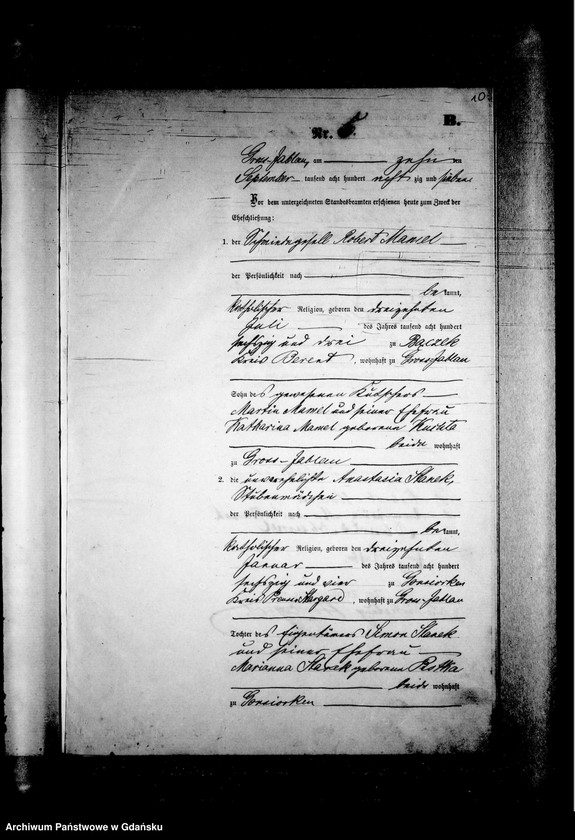 10.
B.
Nr. 5.
Gross-Jablau, am zehn ten
September tausend acht hundert acht zig und sieben.
Vor dem unterzeichneten Standesbeamten erschienen heute zum Zweck der
Eheschließung:
1. der Schmiedegesell Robert Mamel
der Persönlichkeit nach
bekannt,
katholischer Religion, geboren den dreizehnten
Juli des Jahres tausend acht hundert
sechszig und drei zu
Kreis Berent, wohnhaft zu Gross-Jablau
Sohn des gewesenen Kutschers
Martin Mamel und seiner Ehefrau
Katharina Mamel geborene
beide wohnhaft
zu Gross-Jablau
2. die unverehelichte Anastasia Stanek,
Stubenmädchen
der Persönlichkeit nach
bekannt,
katholischer Religion, geboren den dreizehnten
Januar des Jahres tausend acht hundert
sechszig und vier zu Gonsiorken
Kreis Preuss. Stargard, wohnhaft zu Gross-Jablau
Tochter des Eigenthümers Simon Stanek
und seiner Ehefrau
Marianna Stanek geborene Rotta
beide wohnhaft
zu Gonsiorken
Archiwum Państwowe w Gdańsku